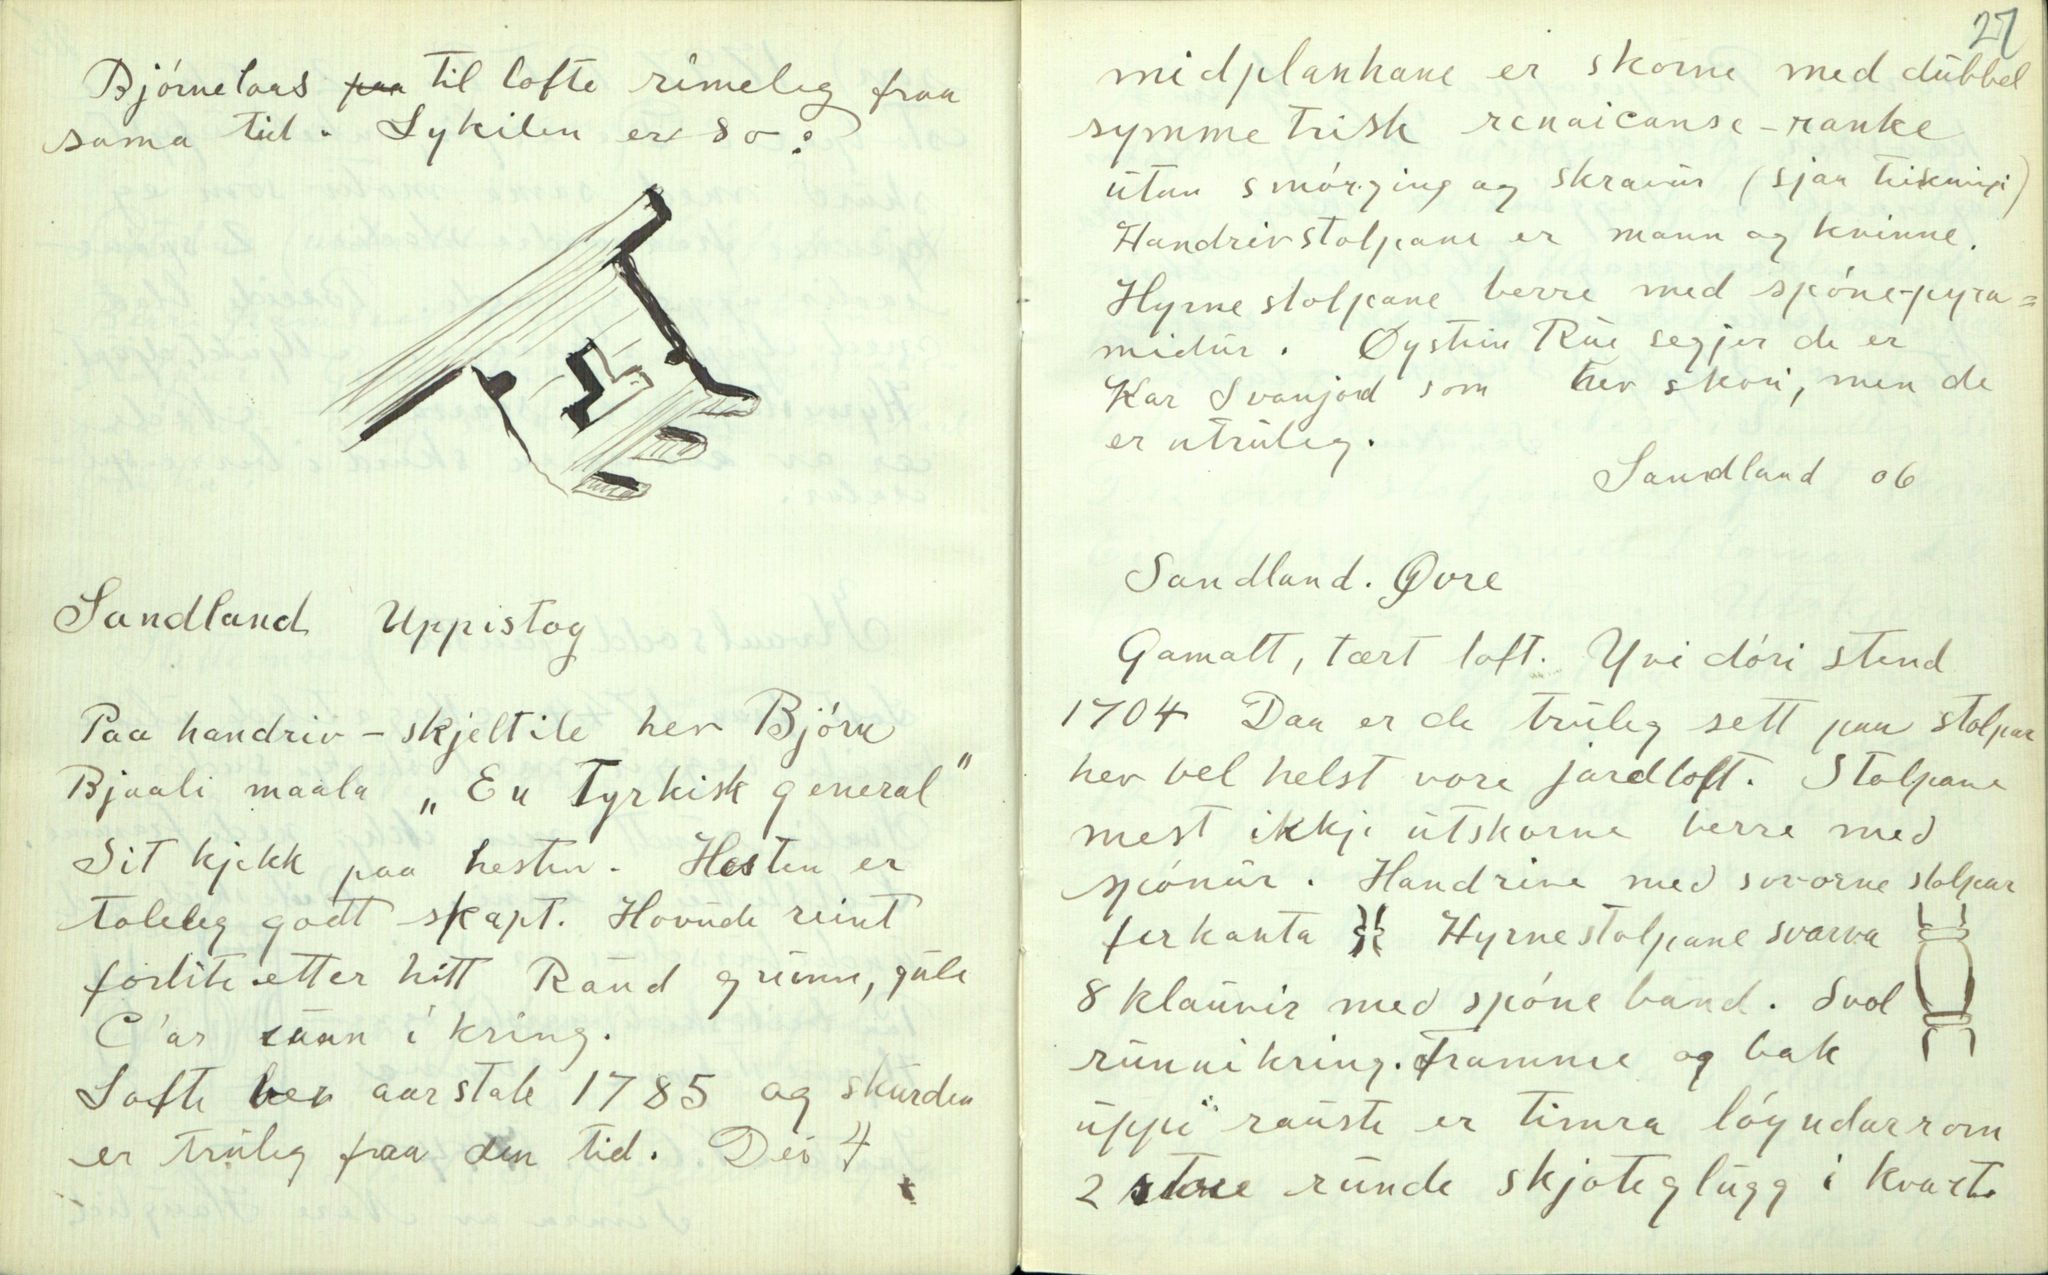 Bjórnelaas paa til lofte rimeleg fraa
sama tid. Lykilen er so:
Sandland Uppistog
Paa handriv-skjeltile hev Bjórn
Bjaali maala „En Tyrkisk general"
Sit kjekk paa hesten. Hesten er
toleleg godt skapt. Hovude reint
forlite etter hitt Raud grunn, gule
C'ar runn i kring.
Lofte ber aarstale 1785 og skurden
er truleg fraa den tid. Dei 4
27
midplankane er skorne med dubbel
symmetrisk renaicanse-ranke
utan smórging og skravur (sjaa teikningi)
Handrivstolpane er mann og kvinne.
Hyrnestolpane berre med spóne-pyra=
midur. Øystein Rue segjer de er
Kar Svanjord som hev skori, men de
er utruleg.
Sandland 06
Sandland. Øvre
Gamalt, tært loft. Yvi dóri stend
1704 Daa er de truleg sett paa stolpar
hev vel helst vore jordloft. Stolpane
mest ikkje utskorne berre med
spónur. Handrive med svorne stolpar
ferkanta Hyrnestolpane svarva
8 klauvir med spóne band. Svol
runn i kring. Framme og bak
uppi rauste er timra lóyndarrom
2 store runde skjoteglugg i kvart.